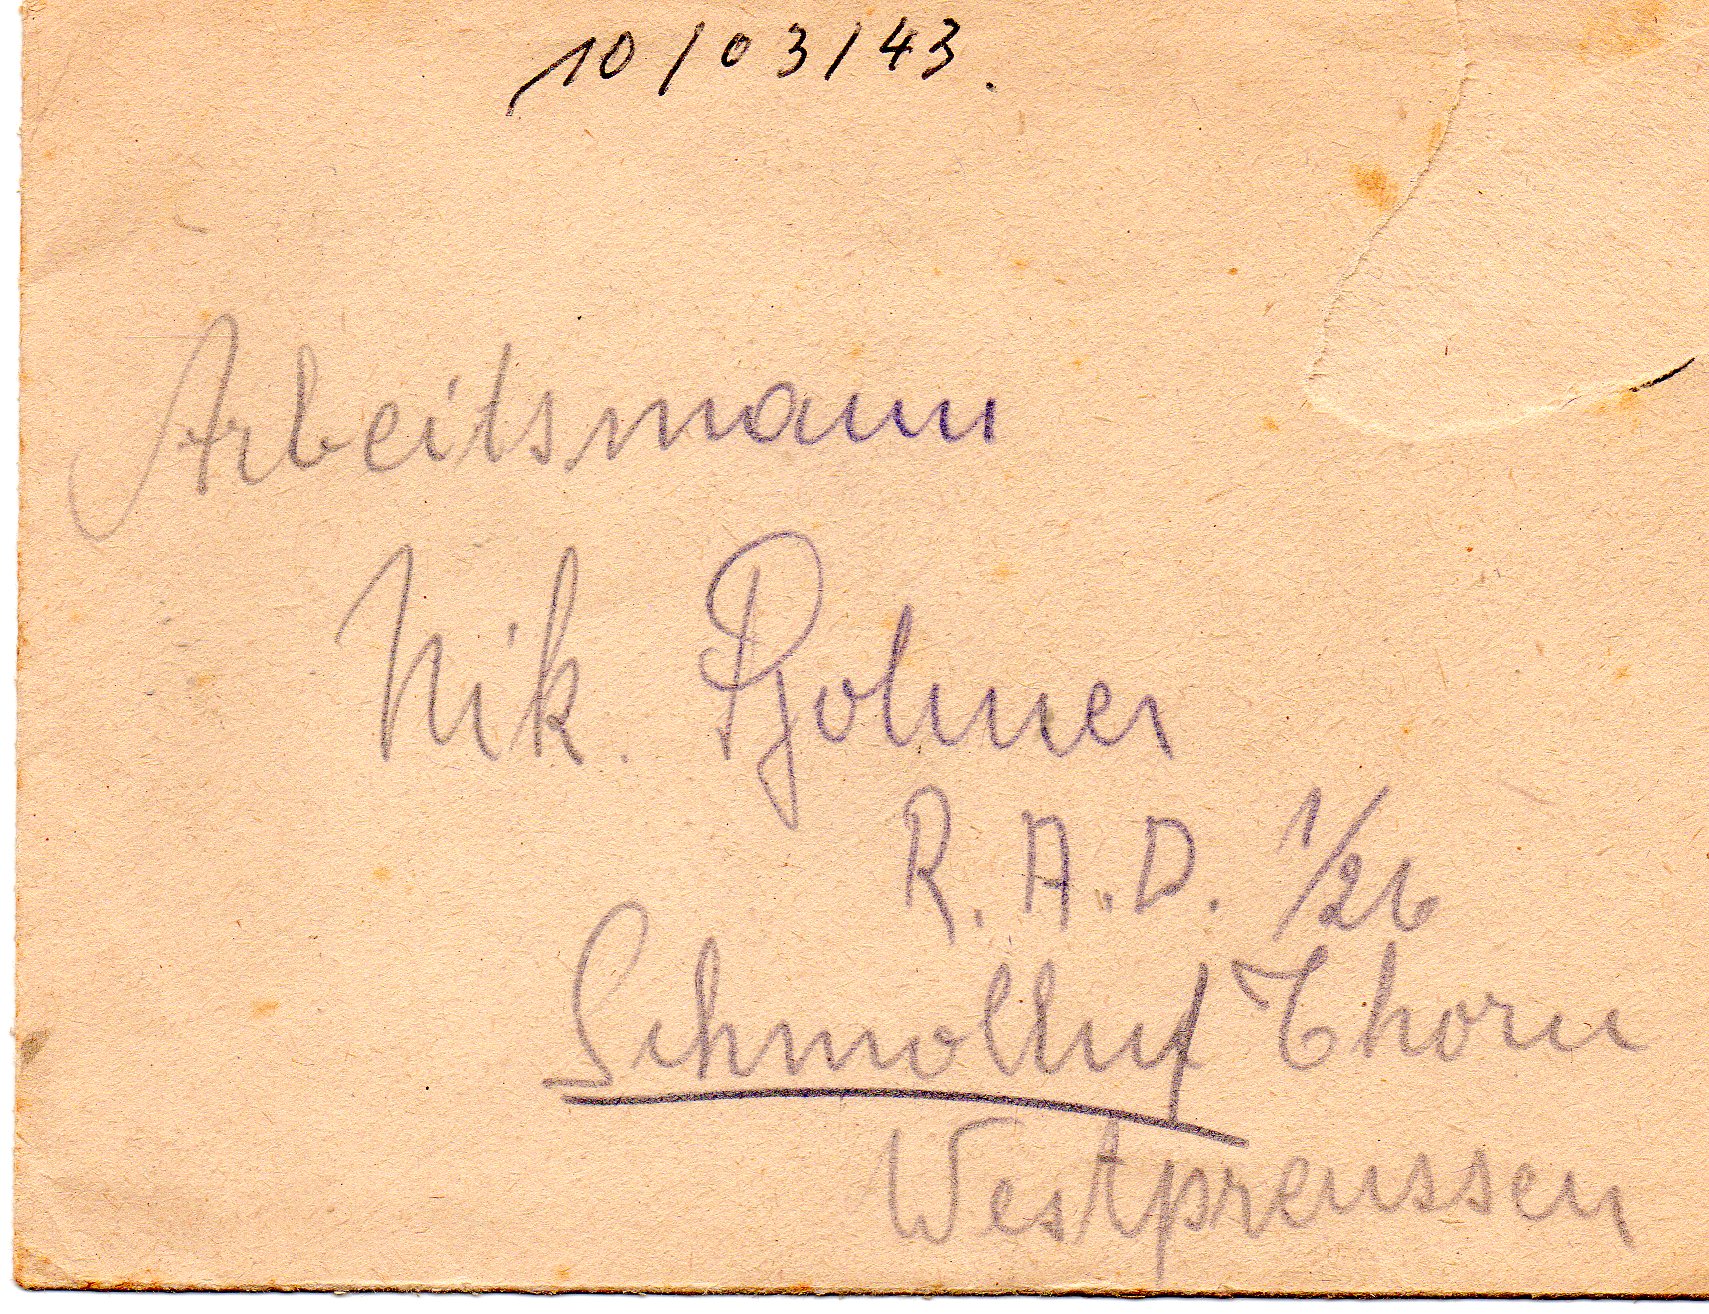 10/03/43.
Arbeitsmann
Nik.
R.A.D. 1/26
Thorn
Westpreussen